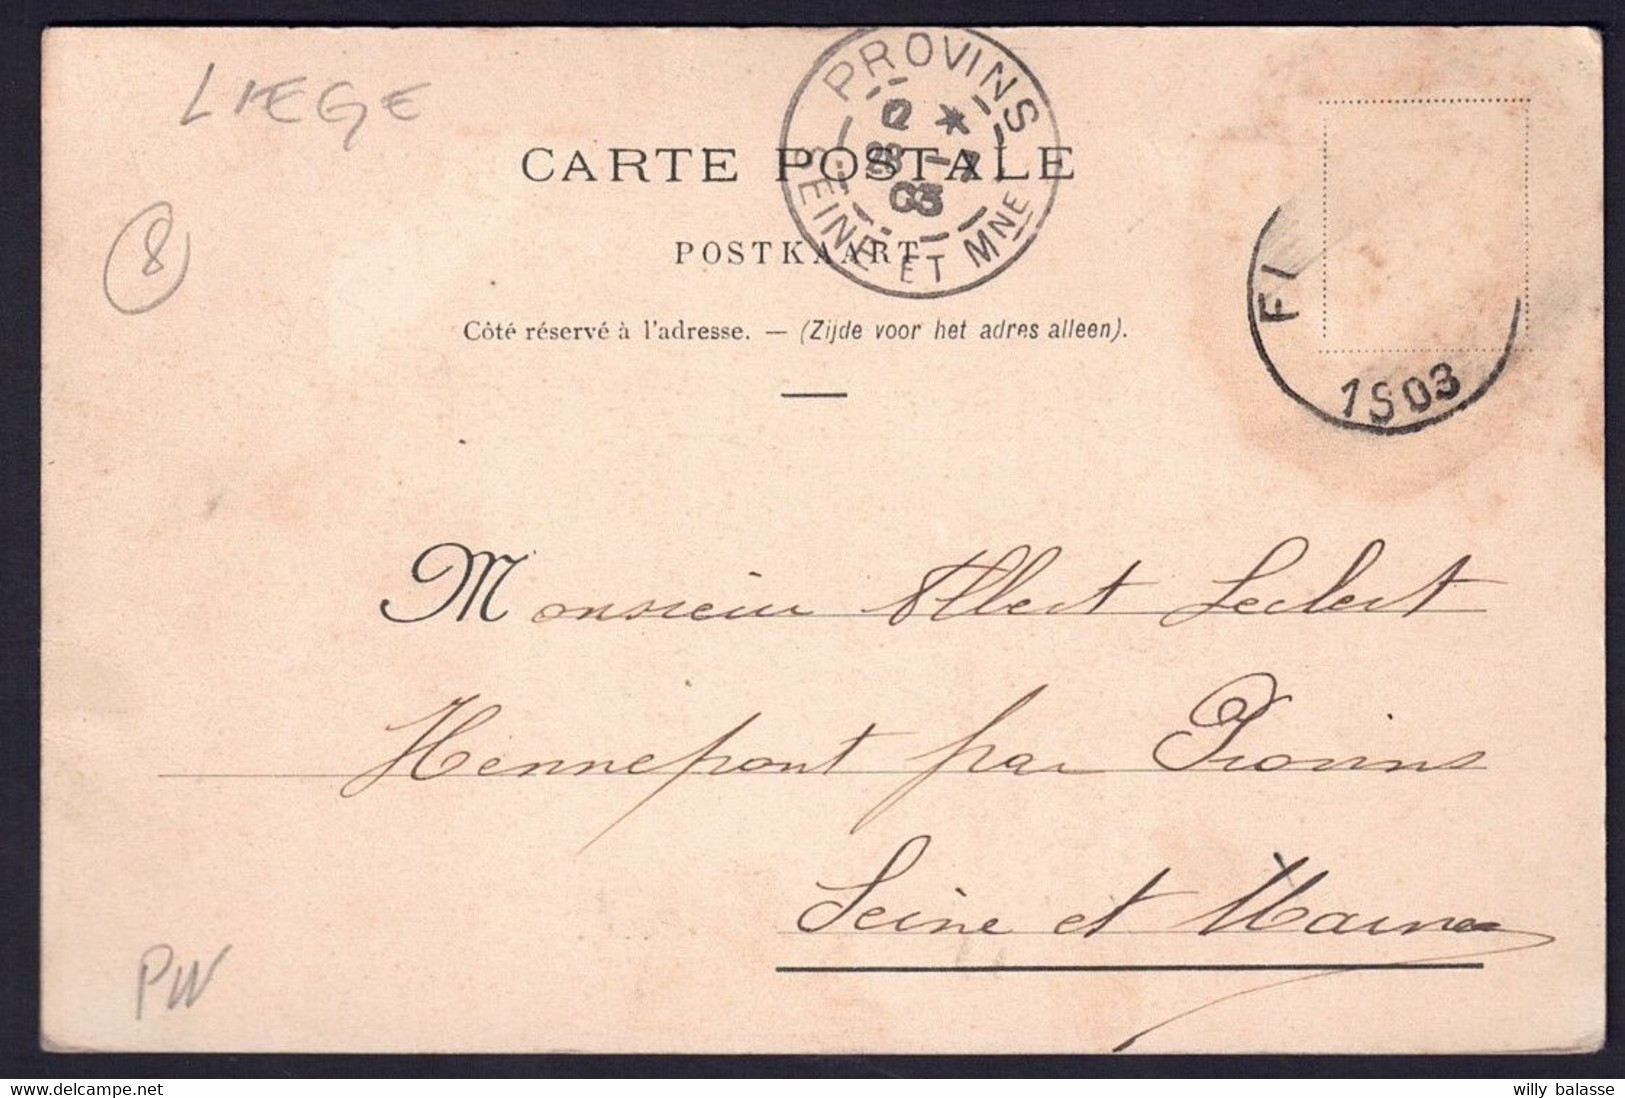 LIEGE
8
PROVINS
SEINE ET MNE
03
CARTE POSTALE
POSTKAART
Côté réservé à l'adresse. — (Zijde voor het adres alleen).
FI
1903
Monsieur Albert Leclert
Hennepont par Provins
Seine et Marne
PW
delcampe.net
willy balasse